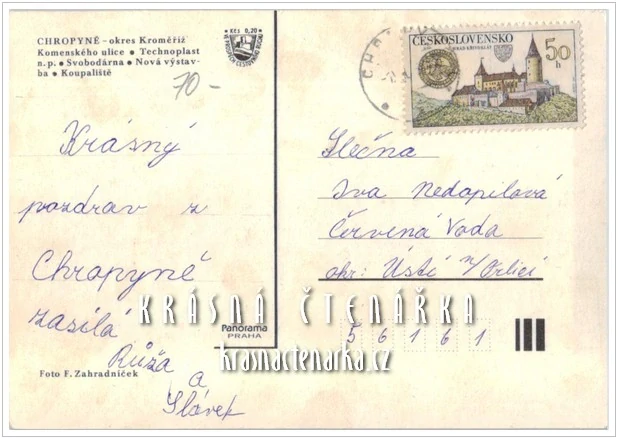 CHROPYNĚ - okres Kroměříž
Komenského ulice • Technoplast
n.p. • Svobodárna • Nová výstav-
ba • Koupaliště
Kčs 0,20
70-
Krásný
pozdrav z
Chropyně
zasílá
Růža
a
Slávek
Foto F. Zahradníček
Panorama
PRAHA
ČESKOSLOVENSKO
50
h
Slečna
Iva Nedopilová
Červená Voda
okr: Ústí n/Orlicí
56161
KRÁSNÁ ČTENÁŘKA
krasnactenarka.cz